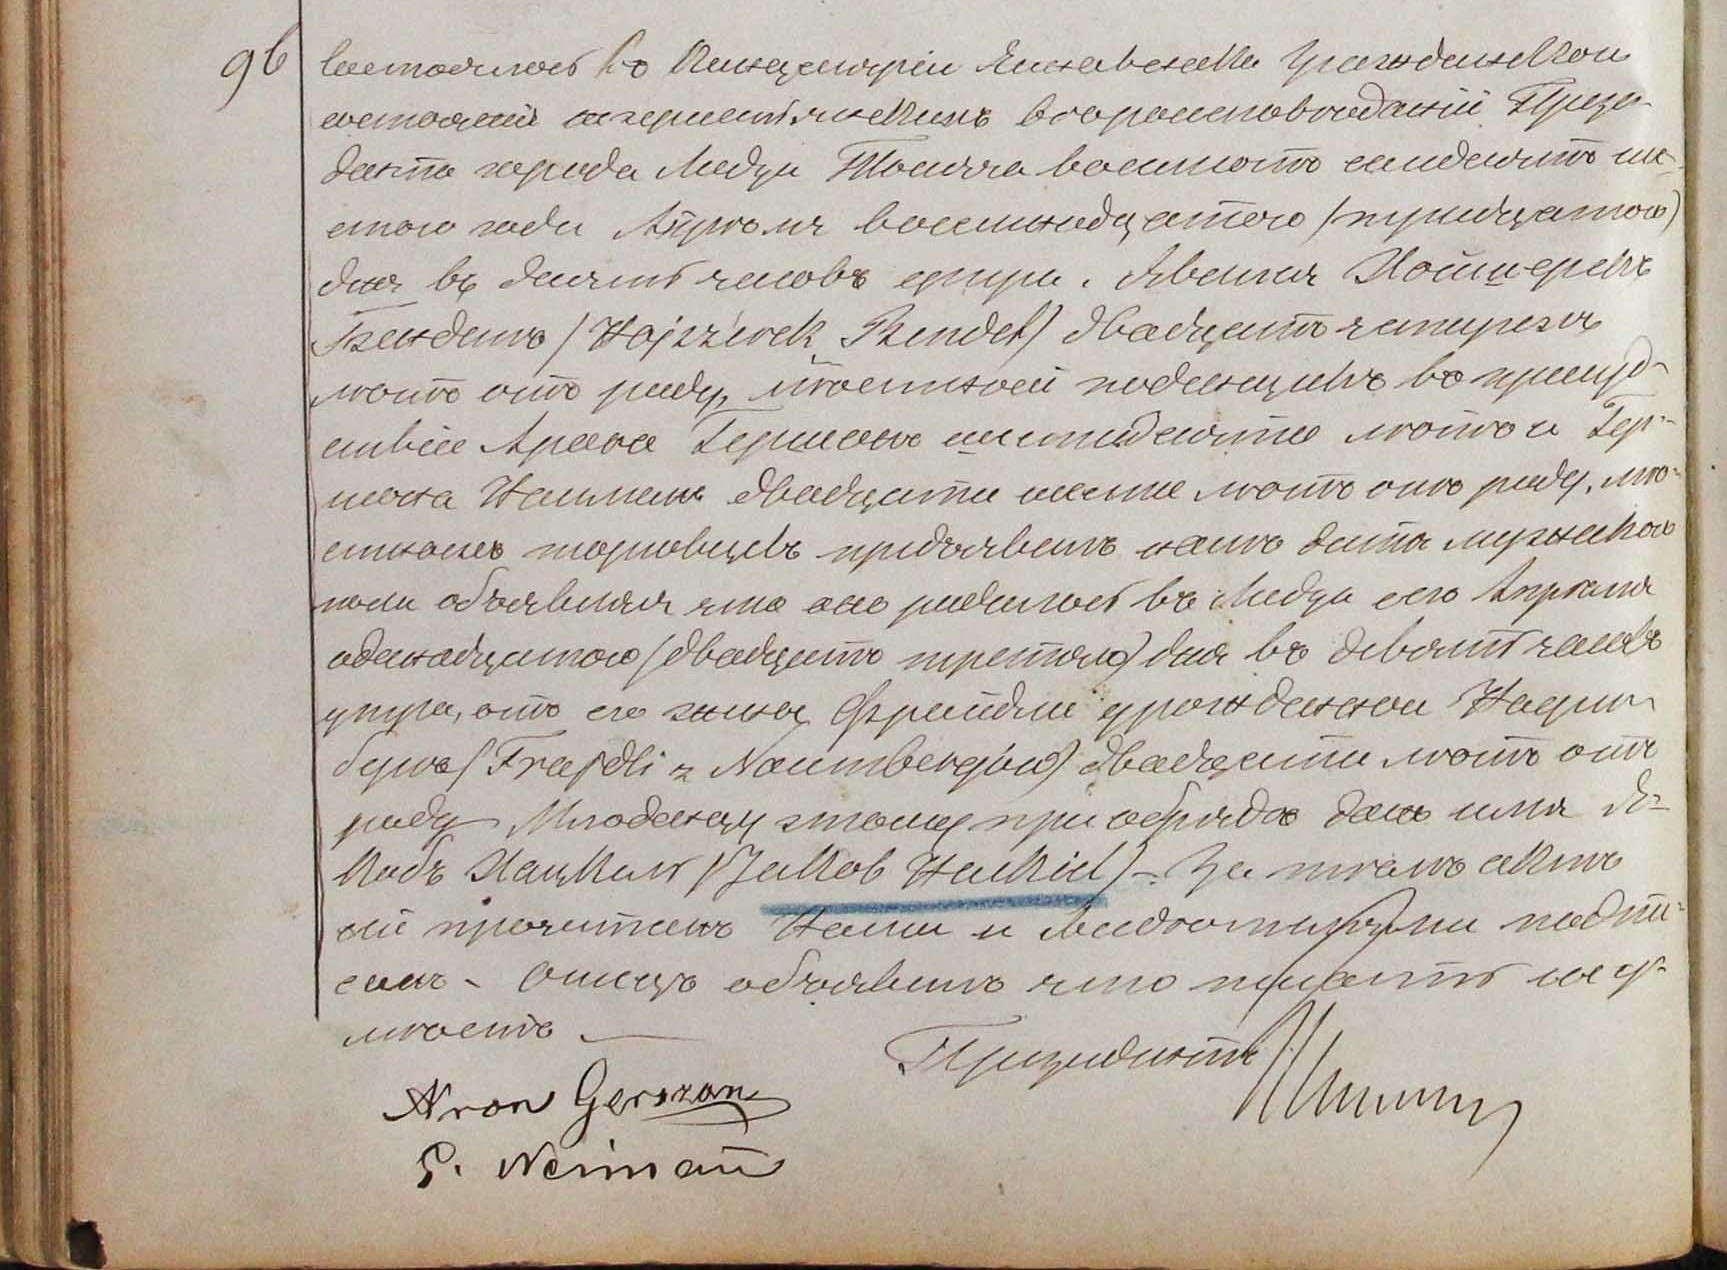 96
Состоялось Въ Канцеляріи Гражданскаго
состоянія нехристіанскихъ вѣроисповѣданій Прези-
дента города Лодзи Тысяча восемьсотъ семьдесятъ ше-
стого года Апрѣля восемнадцатого (тридцатого)
дня въ десять часовъ утра. Явился
Бендетъ (Hajzzerek Bendet) двадцати четырехъ
лѣтъ отъ роду, въ присут-
ствіи Арона Гершона шестидесяти лѣтъ и Гер-
шона Нейманъ двадцати шести лѣтъ отъ роду,
торговцевъ предъявилъ намъ дитя мужеского
пола объявляя что оно родилось въ Лодзи сего Апрѣля
одинадцатого (двадцать третьяго) дня въ девять часовъ
утра, отъ его жены Фрайдли урожденной Наум-
бергъ (Frajdli z Naumbergów) двадцати лѣтъ отъ
роду Младенцу этому при обрядѣ дано имя Я-
кобъ Хацкель (Jakob Hackiel) – За тѣмъ актъ
сей прочитанъ Нами и подпи-
санъ – Отецъ объявилъ что писать не у-
мѣетъ
Президентъ
Aron Gerszon
G. Neiman